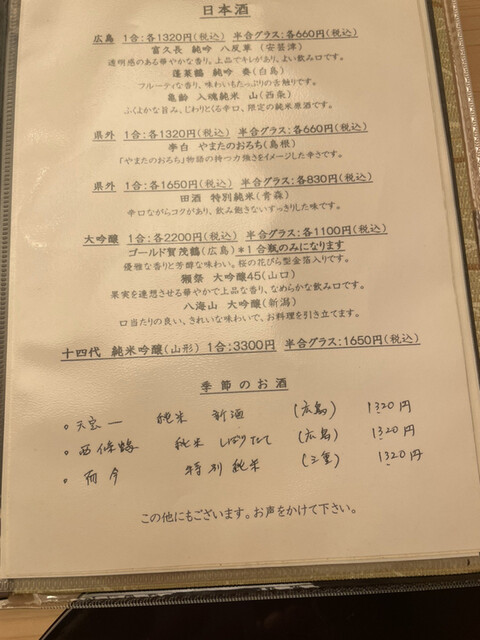 日本酒
広島 1合:各1320円(税込) 半合グラス:各660円(税込)
富久長 純吟 八反草 (安芸津)
透明感のある華やかな香り。上品でキレがあり、よい飲み口です。
蓬莱鶴 純吟 奏(白島)
フルーティな香り、味わいもたっぷりの舌触りです。
亀齢 入魂純米 山(西条)
ふくよかな旨み、じわりとくる辛口、限定の純米原酒です。
県外 1合:各1320円(税込) 半合グラス:各660円(税込)
李白 やまたのおろち(島根)
「やまたのおろち」物語の持つ力強さをイメージした辛さです。
県外 1合:各1650円(税込) 半合グラス:各830円(税込)
田酒 特別純米(青森)
辛口ながらコクがあり、飲み飽きないすっきりした味です。
大吟醸 1合:各2200円(税込) 半合グラス:各1100円(税込)
ゴールド賀茂鶴(広島)*1合瓶のみになります
優雅な香りと芳醇な味わい。桜の花びら型金箔入りです。
獺祭 大吟醸45(山口)
果実を連想させる華やかで上品な香り、なめらかな飲み口です。
八海山 大吟醸(新潟)
口当たりの良い、きれいな味わいで、お料理を引き立てます。
十四代 純米吟醸(山形) 1合:3300円 半合グラス:1650円(税込)
季節のお酒
。天宝一 純米 新酒 (広島) 1320円
。西條鶴 純米 しぼりたて (広島) 1320円
。而今 特別純米 (三重) 1320円
この他にもございます。お声をかけて下さい。